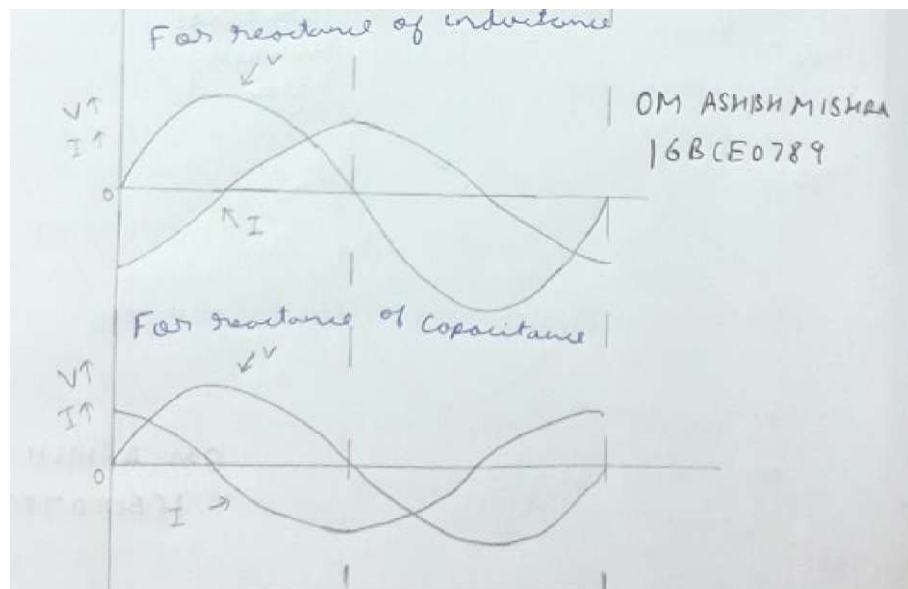 For reactance of inductance
V
V↑
I↑
OM ASHISH MISHRA
16BCE0789
0
I
For reactance of capacitance
V
V↑
I↑
0
I